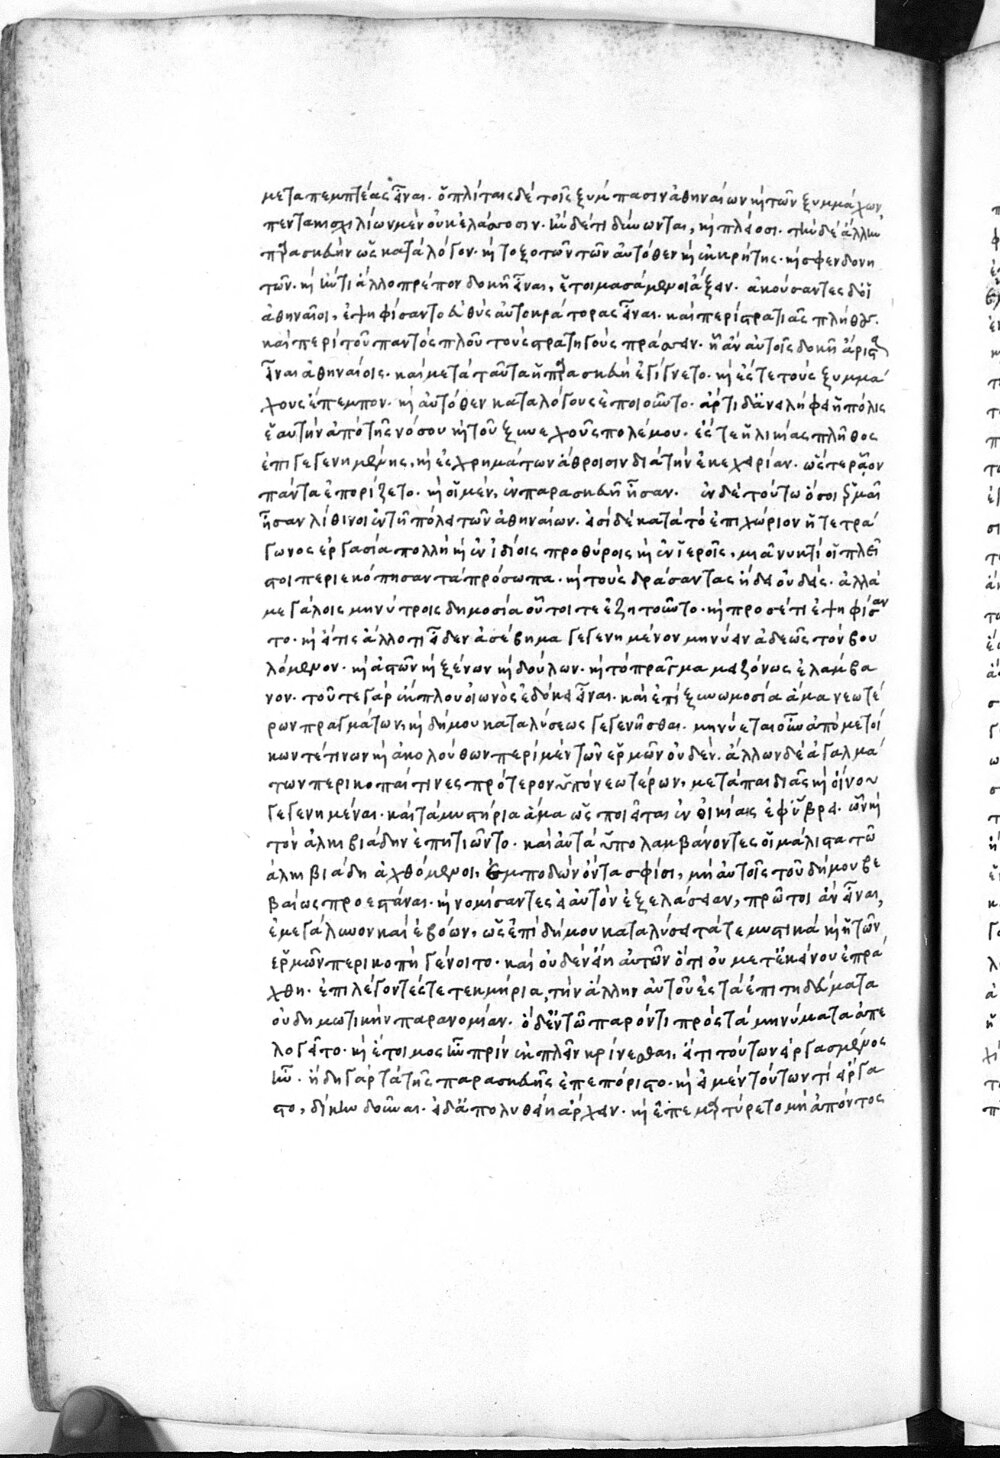 μεταπεμπτέας εἶναι. ὁπλίταις δὲ τοῖς ξύμπασιν ἀθηναίων καὶ τῶν ξυμμάχων
πεντακισχιλίων μὲν οὐκ ἐλάσσοσιν. ἢν δέ τι δύνωνται, καὶ πλείοσι. τὴν δὲ ἄλλην
παρασκευὴν ὡς κατὰ λόγον. καὶ τοξοτῶν τῶν αὐτόθεν καὶ ἐκ κρήτης. καὶ σφενδονη
τῶν. καὶ ἤν τι ἄλλο πρέπον δοκῇ εἶναι, ἑτοιμασάμενοι ἄξειν. ἀκούσαντες δ' οἱ
ἀθηναῖοι, ἐψηφίσαντο εὐθὺς αὐτοκράτορας εἶναι. καὶ περὶ στρατιᾶς πλήθους.
καὶ περὶ τοῦ παντὸς πλοῦ τοὺς στρατηγοὺς πράσσειν. ᾗ ἂν αὐτοῖς δοκῇ ἄριστα
εἶναι ἀθηναίοις. καὶ μετὰ ταῦτα ἡ παρασκευὴ ἐγίγνετο. καὶ ἔς τε τοὺς ξυμμά
χους ἔπεμπον. καὶ αὐτόθεν καταλόγους ἐποιοῦντο. ἄρτι δ' ἀνειλήφει ἡ πόλις
ἑαυτὴν ἀπὸ τῆς νόσου καὶ τοῦ ξυνεχοῦς πολέμου. ἔς τε ἡλικίας πλῆθος
ἐπιγεγενημένης, καὶ ἐς χρημάτων ἄθροισιν διὰ τὴν ἐκεχειρίαν. ὥστε ρᾷον
πάντα ἐπορίζετο. καὶ οἱ μὲν, ἐν παρασκευῇ ἦσαν. ἐν δὲ τούτω ὅσοι ἑρμαῖ
ἦσαν λίθινοι ἐν τῇ πόλει τῶν ἀθηναίων. εἰσὶ δὲ κατὰ τὸ ἐπιχώριον ἡ τετρά
γωνος ἐργασία πολλὴ καὶ ἐν ἰδίοις προθύροις καὶ ἐν ἱεροῖς, μιᾶ νυκτὶ οἱ πλεῖ
στοι περιεκόπησαν τὰ πρόσωπα. καὶ τοὺς δράσαντας ᾔδει οὐδείς. ἀλλὰ
μεγάλοις μηνύτροις δημοσία οὗτοί τε ἐζητοῦντο. καὶ προσέτι ἐψηφίσαν
το. καὶ εἴ τις ἄλλο τι εἶδεν ἀσέβημα γεγενημένον μηνύειν ἀδεῶς τὸν βου
λόμενον. καὶ ἀστῶν καὶ ξένων καὶ δούλων. καὶ τὸ πρᾶγμα μειζόνως ἐλάμβα
νον. τοῦ τε γὰρ ἔκπλου οἰωνὸς ἐδόκει εἶναι. καὶ ἐπὶ ξυνωμοσία ἅμα νεωτέ
ρων πραγμάτων, καὶ δήμου καταλύσεως γεγενῆσθαι. μηνύεται οὖν ἀπὸ μετοί
κων τέ τινων καὶ ἀκολούθων περὶ μὲν τῶν ἑρμῶν οὐδέν. ἄλλων δὲ ἀγαλμά
των περικοπαί τινες πρότερον ὑπὸ νεωτέρων, μετὰ παιδιᾶς καὶ οἴνου
γεγενημέναι. καὶ τὰ μυστήρια ἅμα ὡς ποιεῖται ἐν οἰκίαις ἐφ' ὕβρει. ὧν καὶ
τὸν ἀλκιβιάδην ἐπητιῶντο. καὶ αὐτὰ ὑπολαμβάνοντες οἱ μάλιστα τῶ
ἀλκιβιάδη ἀχθόμενοι, ἐμποδὼν ὄντα σφίσι, μὴ αὐτοῖς τοῦ δήμου βε
βαίως προεστάναι. καὶ νομίσαντες εἰ αὐτὸν ἐξελάσειαν, πρῶτοι ἂν εἶναι,
ἐμεγάλυνον καὶ ἐβόων, ὡς ἐπὶ δήμου καταλύσει τά τε μυστικὰ καὶ ἡ τῶν
ἑρμῶν περικοπὴ γένοιτο. καὶ οὐδὲν εἴη αὐτῶν ὅτι οὐ μετ' ἐκείνου ἐπρά
χθη. ἐπιλέγοντές τε τεκμήρια, τὴν ἄλλην αὐτοῦ ἐς τὰ ἐπιτηδεύματα
οὐ δημωτικὴν παρανομίαν. ὁ δ' ἔν τῶ παρόντι πρός τὰ μηνύματα ἀπε
λογεῖτο. καὶ ἑτοῖμος ἦν πρὶν ἐκπλεῖν κρίνεσθαι, εἴ τι τούτων εἰργασμένος
ἦν. ἤδη γὰρ τὰ τῆς παρασκευῆς ἐπεπόριστο. καὶ εἰ μὲν τούτων τι εἴργα
στο, δίκην δοῦναι. εἰ δ' ἀπολυθείη ἄρχειν. καὶ ἐπεμαρτύρετο μὴ ἀπόντος